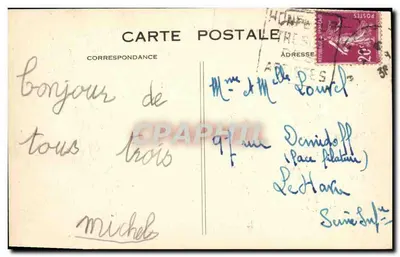 CARTE POSTALE
CORRESPONDANCE
ADRESSE
HONFLEUR
POSTES
20c
Bonjour de
tous trois
Michel
Mme et Melle Louvel
97 rue Demidoff
(Place filature)
Le Havre
Seine Infre
CPAphil.com